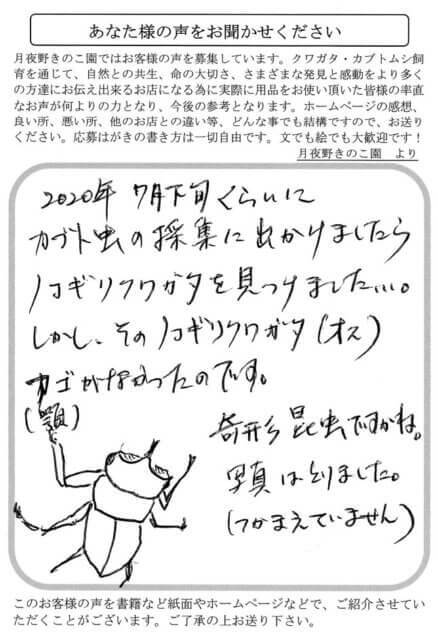 あなた様の声をお聞かせください
月夜野きのこ園ではお客様の声を募集しています。クワガタ・カブトムシ飼
育を通じて、自然との共生、命の大切さ、さまざまな発見と感動をより多く
の方達にお伝え出来るお店になる為に実際に用品をお使い頂いた皆様の率直
なお声が何よりの力となり、今後の参考となります。ホームページの感想、
良い所、悪い所、他のお店との違い等、どんな事でも結構ですので、お送り
ください。応募はがきの書き方は一切自由です。文でも絵でも大歓迎です！
月夜野きのこ園　より
2020年 7月下旬くらいに
カブト虫の採集に出かけましたら
ノコギリクワガタを見つけました…。
しかし、そのノコギリクワガタ(オス)
アゴがなかったのです。
(顎)
奇形昆虫ですかね。
写真はとりました。
(つかまえていません)
このお客様の声を書籍など紙面やホームページなどで、ご紹介させてい
ただくことがございます。ご了承の上お送り下さい。